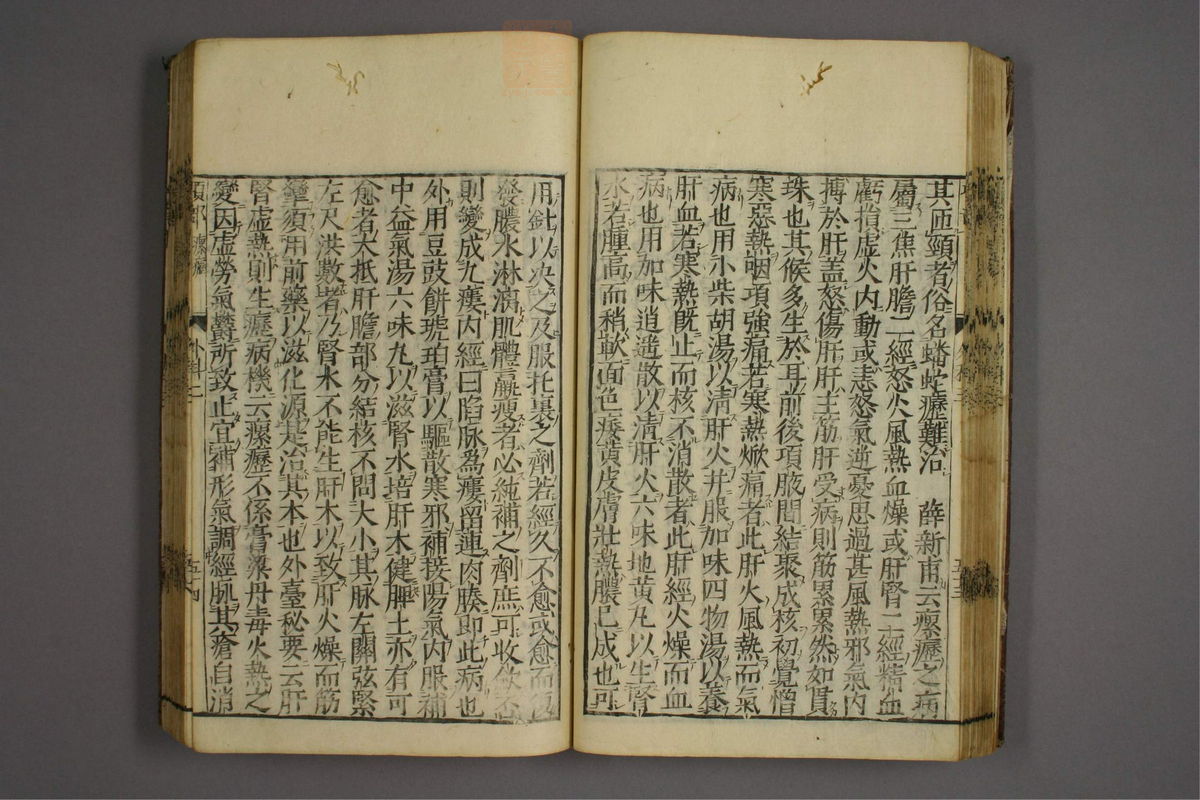 其匝頸者俗名蟠蛇癧難治 薛新甫云瘰癧之病
屬三焦肝膽二經怒火風熱血燥或肝腎二經精血
虧損虚火内動或恚怒氣逆憂思過甚風熱邪氣内
搏於肝蓋怒傷肝肝主筋肝受病則筋累累然如貫
珠也其候多生於耳前後項腋間結聚成核初覺憎
寒惡熱咽項強痛若寒熱焮痛者此肝火風熱而氣
病也用小柴胡湯以清肝火并服加味四物湯以養
肝血若寒熱既止而核不消散者此肝經火燥而血
病也用加味逍遥散以清肝火六味地黄丸以生腎
水若腫高而稍軟面色痿黄皮膚壯熱膿已成也可
用針以决之及服托裏之劑若經久不愈或愈而復
發膿水淋漓肌體羸痩者必純補之劑庶可收斂否
則變成九瘻内經曰陷脉爲瘻留連肉腠即此病也
外用豆豉餅琥珀膏以驅散寒邪補接陽氣内服補
中益氣湯六味丸以滋腎水培肝木健脾土亦有可
愈者大抵肝膽部分結核不問大小其脉左關弦緊
左尺洪數者乃腎水不能生肝木以致肝火燥而筋
攣須用前藥以滋化源是治其本也外臺秘要云肝
腎虚熱則生癧病機云瘰癧不係膏粱丹毒火熱之
變因虚勞氣欝所致止宜補形氣調經脉其瘡自消
頸部 瘰癧 外科二